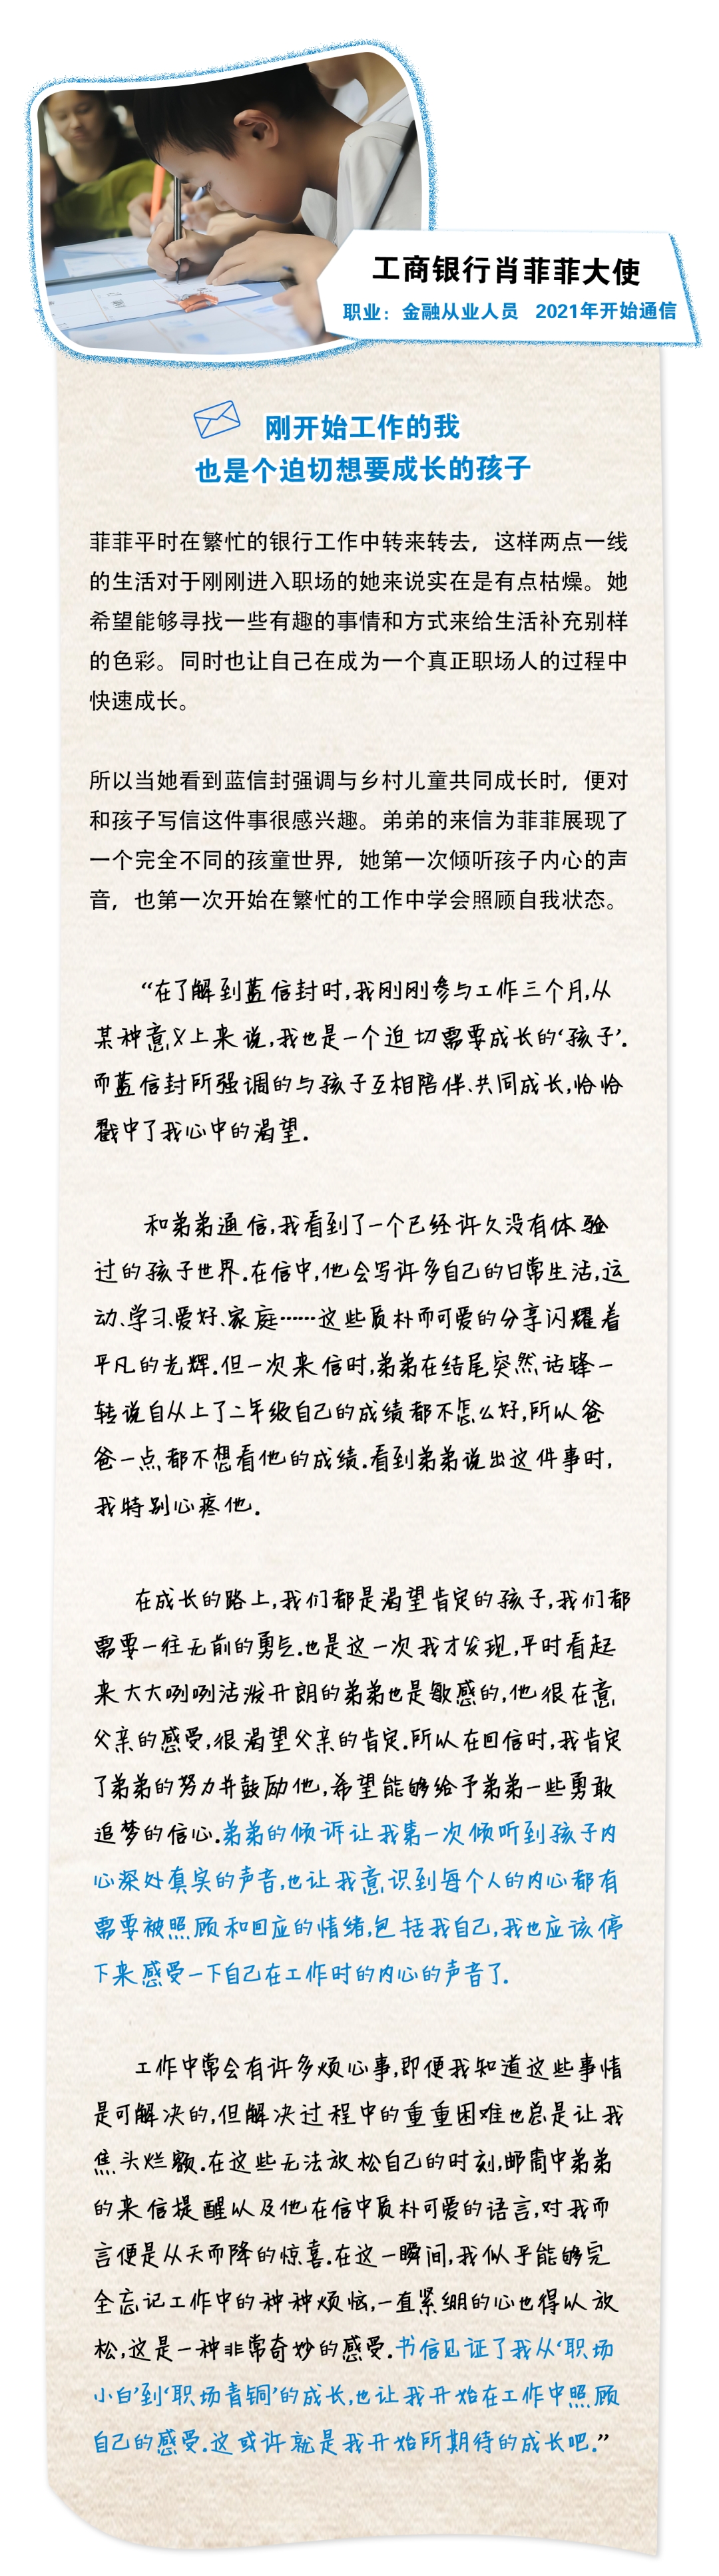 工商银行肖菲菲大使
职业：金融从业人员 2021年开始通信
刚开始工作的我
也是个迫切想要成长的孩子
菲菲平时在繁忙的银行工作中转来转去，这样两点一线
的生活对于刚刚进入职场的她来说实在是有点枯燥。她
希望能够寻找一些有趣的事情和方式来给生活补充别样
的色彩。同时也让自己在成为一个真正职场人的过程中
快速成长。
所以当她看到蓝信封强调与乡村儿童共同成长时，便对
和孩子写信这件事很感兴趣。弟弟的来信为菲菲展现了
一个完全不同的孩童世界，她第一次倾听孩子内心的声
音，也第一次开始在繁忙的工作中学会照顾自我状态。
“在了解到蓝信封时,我刚刚参与工作三个月,从
某种意义上来说,我也是一个迫切需要成长的‘孩子’.
而蓝信封所强调的与孩子互相陪伴、共同成长,恰恰
戳中了我心中的渴望.
和弟弟通信,我看到了一个已经许久没有体验
过的孩子世界.在信中,他会写许多自己的日常生活,运
动、学习、爱好、家庭……这些质朴而可爱的分享闪耀着
平凡的光辉.但一次来信时,弟弟在结尾突然话锋一
转说自从上了二年级自己的成绩都不怎么好,所以爸
爸一点都不想看他的成绩.看到弟弟说出这件事时,
我特别心疼他.
在成长的路上,我们都是渴望肯定的孩子,我们都
需要一往无前的勇气.也是这一次我才发现,平时看起
来大大咧咧活泼开朗的弟弟也是敏感的,他很在意
父亲的感受,很渴望父亲的肯定.所以在回信时,我肯定
了弟弟的努力并鼓励他,希望能够给予弟弟一些勇敢
追梦的信心.弟弟的倾诉让我第一次倾听到孩子内
心深处真实的声音,也让我意识到每个人的内心都有
需要被照顾和回应的情绪,包括我自己,我也应该停
下来感受一下自己在工作时的内心的声音了.
工作中常会有许多烦心事,即便我知道这些事情
是可解决的,但解决过程中的重重困难也总是让我
焦头烂额.在这些无法放松自己的时刻,邮箱中弟弟
的来信提醒以及他在信中质朴可爱的语言,对我而
言便是从天而降的惊喜.在这一瞬间,我似乎能够完
全忘记工作中的种种烦恼,一直紧绷的心也得以放
松,这是一种非常奇妙的感受.书信见证了我从‘职场
小白’到‘职场青铜’的成长,也让我开始在工作中照顾
自己的感受.这或许就是我开始所期待的成长吧.”